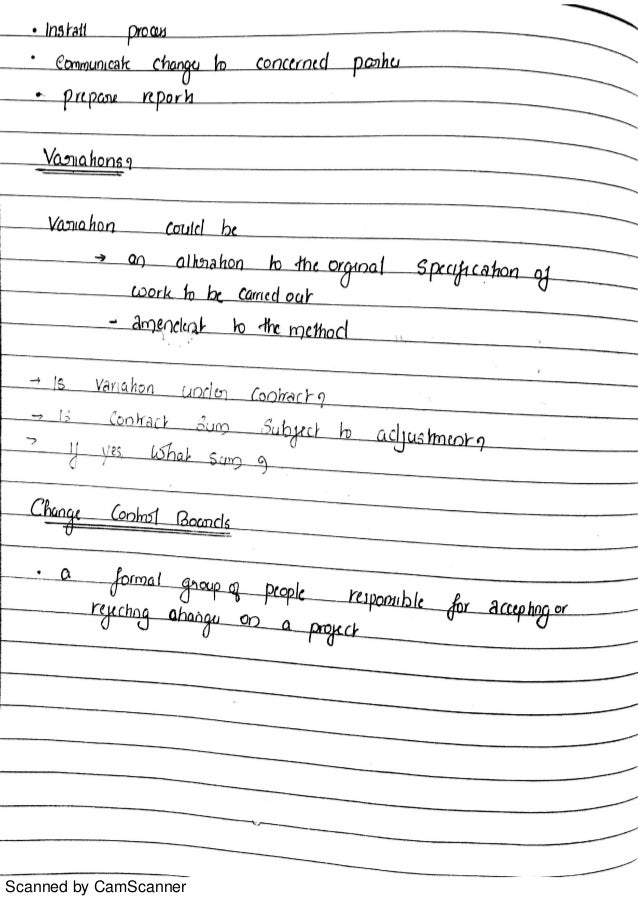 • Install process
• Communicate changes to concerned parties
• prepare reports
Variations?
Variation could be
→ an alteration to the orginal specification of
work to be carried out
- amendent to the method
→ Is variation under contract?
→ Is contract sum subject to adjustment?
→ If yes what sum?
Change Control Boards
• a formal group of people responsible for accepting or
rejecting changes on a project
Scanned by CamScanner